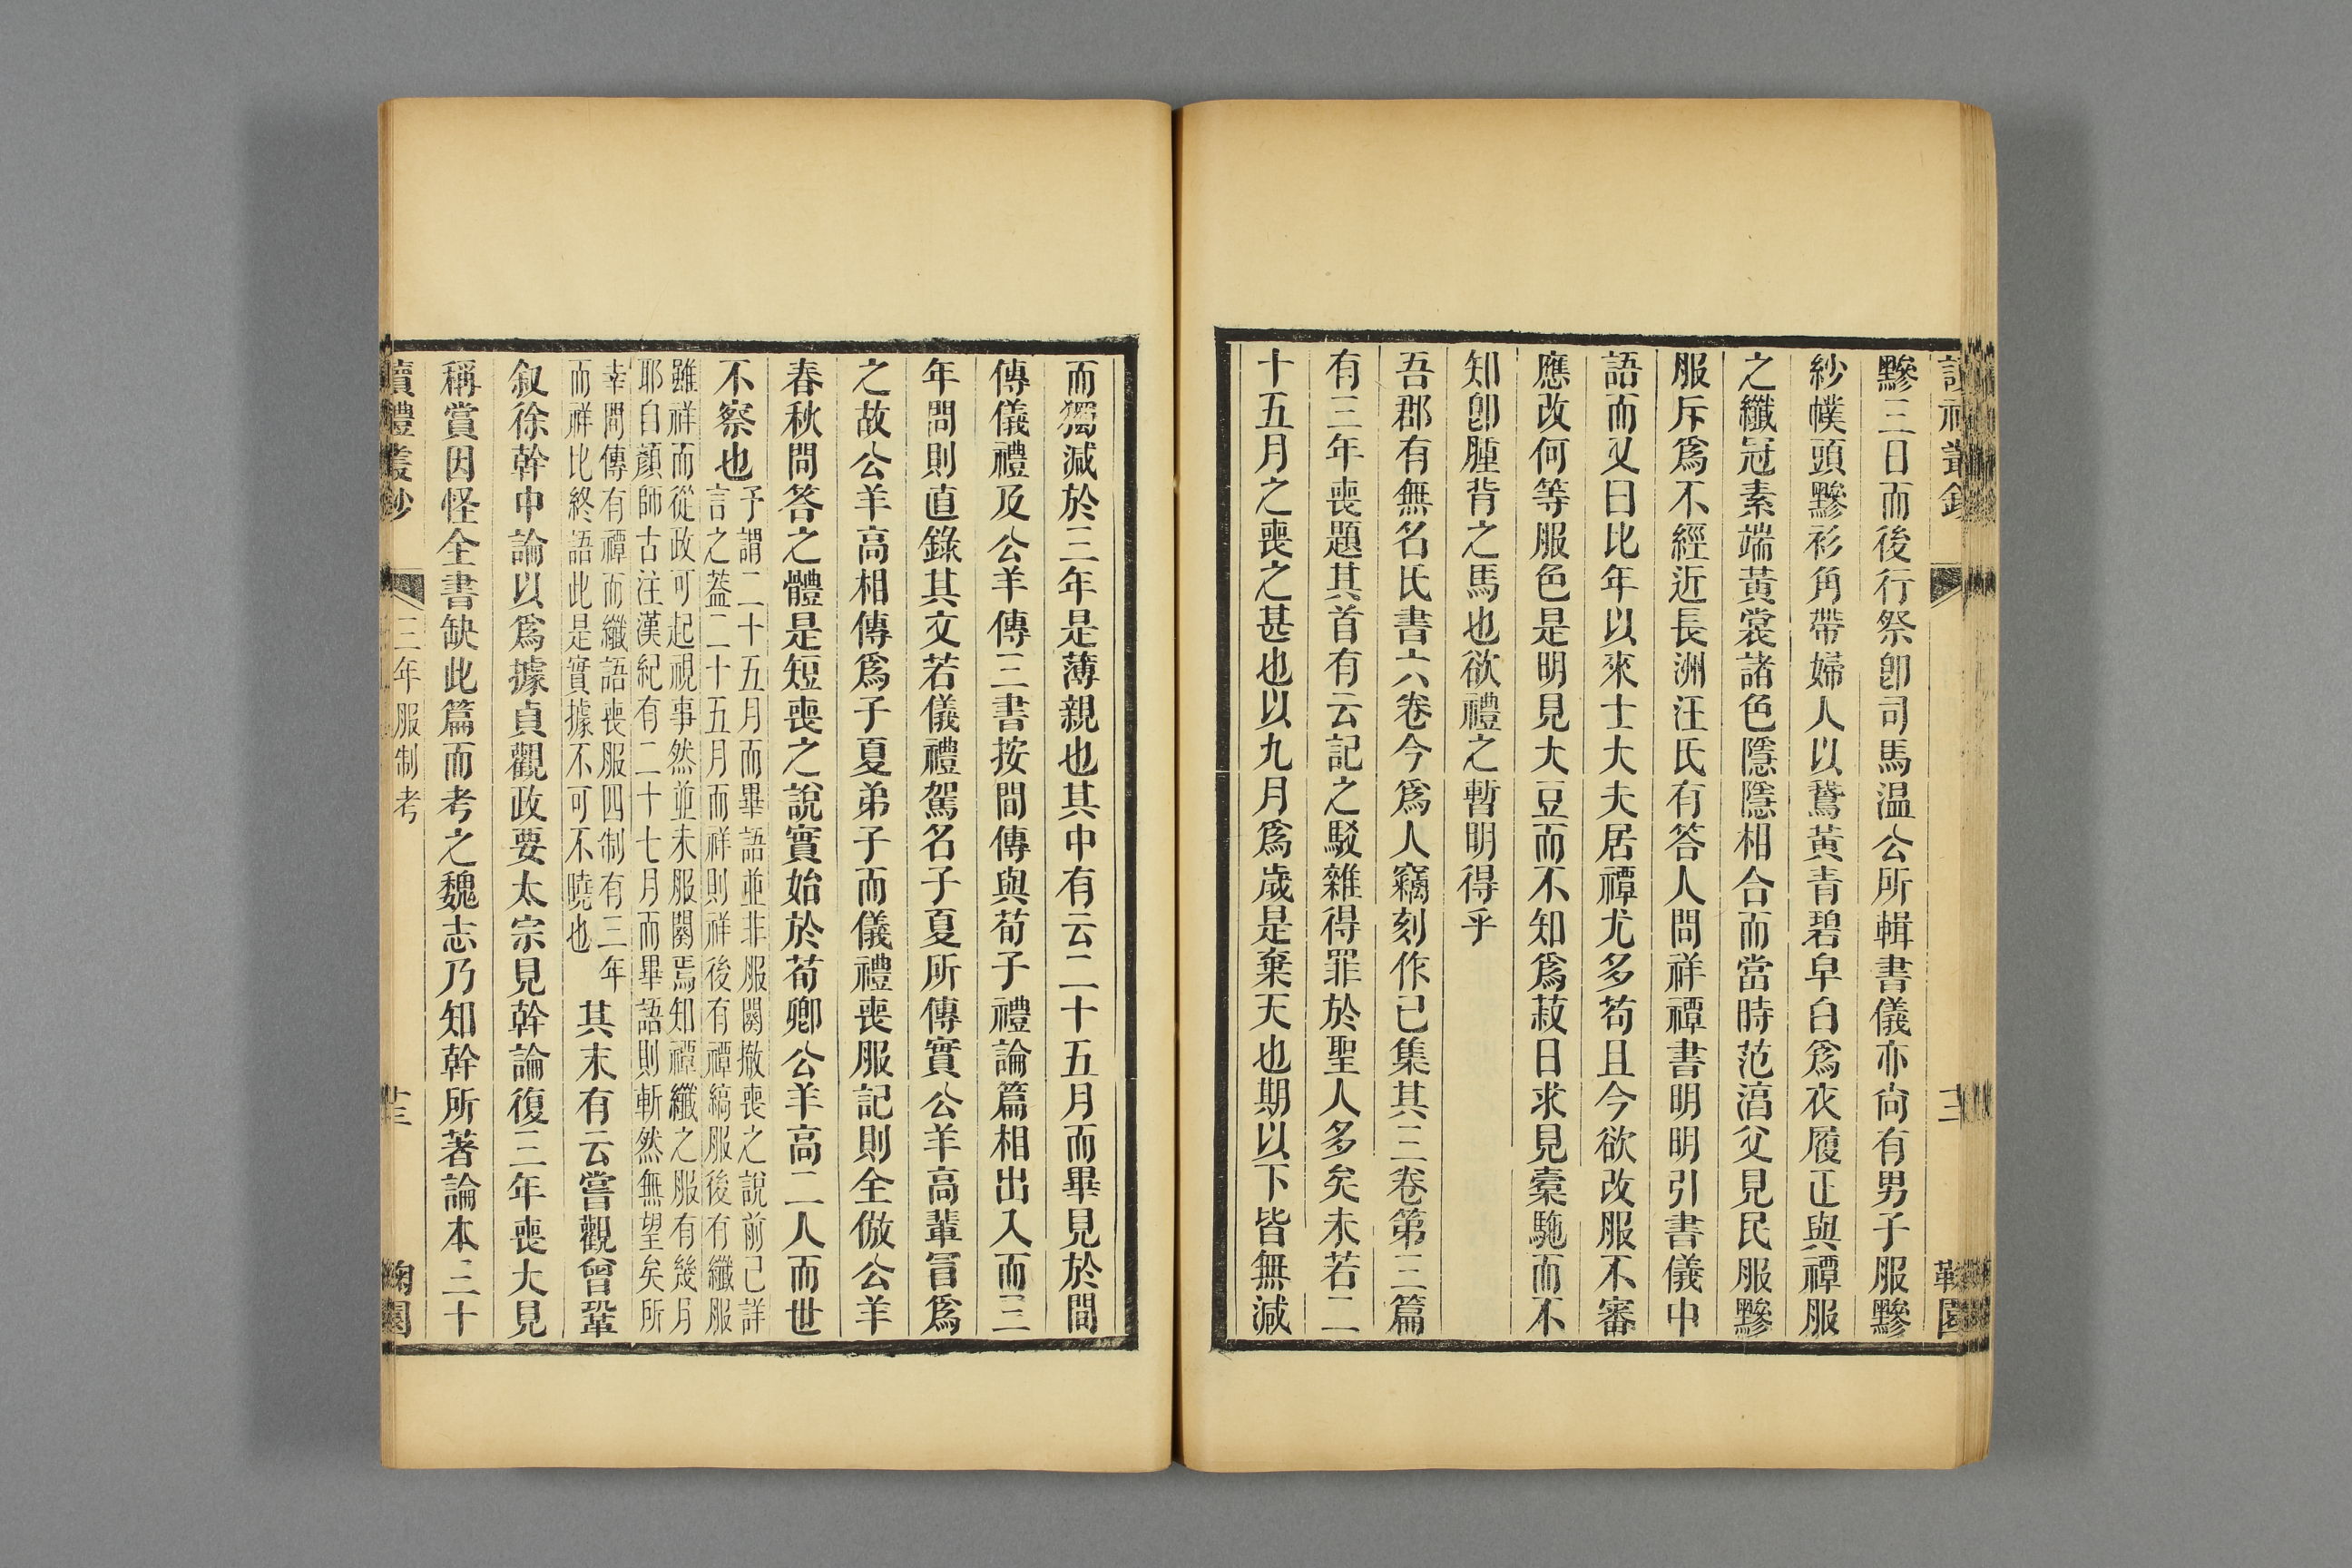 黲三日而後行祭卽司馬温公所輯書儀亦尙有男子服黲
紗幞頭黲衫角帶婦人以鵞黃青碧皁白爲衣履正與禫服
之纖冠素端黃裳諸色隱隱相合而當時范滈父見民服黲
服斥爲不經近長洲汪氏有答人問祥禫書明明引書儀中
語而又曰比年以來士大夫居禫尤多苟且今欲改服不審
應改何等服色是明見大豆而不知爲菽日求見橐駞而不
知卽腫背之馬也欲禮之暫明得乎
吾郡有無名氏書六卷今爲人竊刻作已集其三卷第三篇
有三年喪題其首有云記之駁雜得罪於聖人多矣未若二
十五月之喪之甚也以九月爲歲是棄天也期以下皆無減
而獨減於三年是薄親也其中有云二十五月而畢見於間
傳儀禮及公羊傳三書按間傳與荀子禮論篇相出入而三
年問則直錄其文若儀禮駕名子夏所傳實公羊高輩冒爲
之故公羊高相傳爲子夏弟子而儀禮喪服記則全倣公羊
春秋問答之體是短喪之說實始於荀卿公羊高二人而世
不察也
予謂二十五月而畢語並非服闋撤喪之說前已詳
言之葢二十五月而祥則祥後有禫縞服後有纖服
雖祥而從政可起視事然並未服闋焉知禫纖之服有幾月
耶自顏師古注漢紀有二十七月而畢語則斬然無望矣所
幸間傳有禫而纖語喪服四制有三年
而祥比終語此是實據不可不曉也
其末有云嘗觀曾鞏
叙徐幹中論以爲據貞觀政要太宗見幹論復三年喪大見
稱賞因怪全書缺此篇而考之魏志乃知幹所著論本三十
讀禮叢鈔
三年服制考